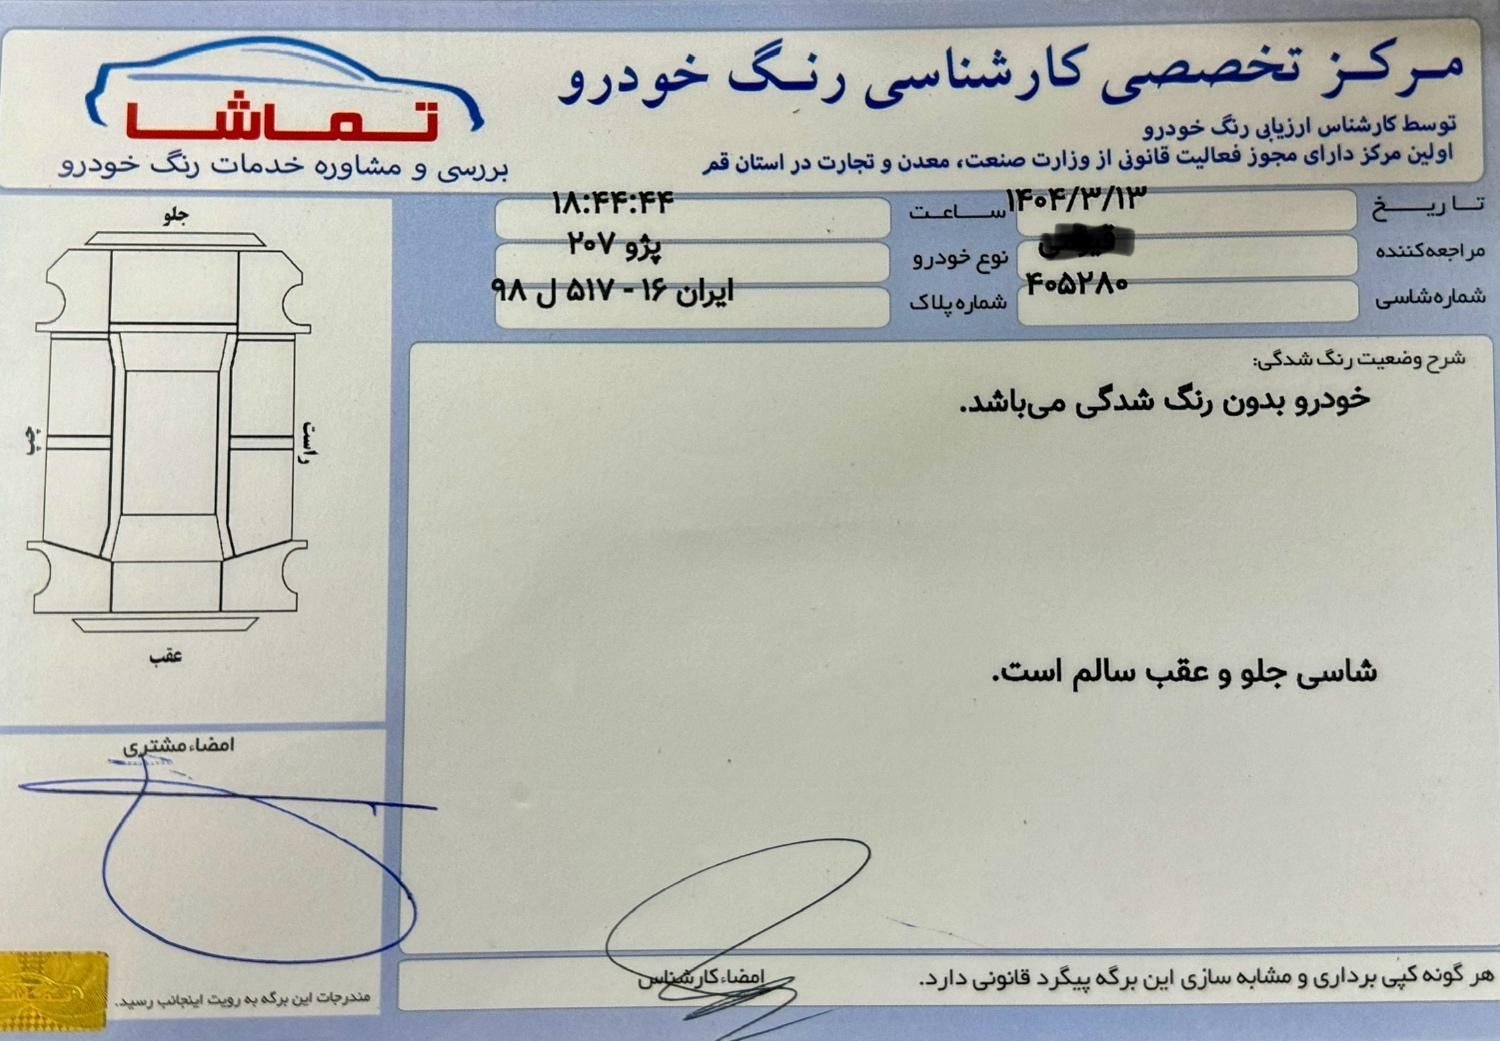 مرکز تخصصی کارشناسی رنگ خودرو
توسط کارشناس ارزیابی رنگ خودرو
اولین مرکز دارای مجوز فعالیت قانونی از وزارت صنعت، معدن و تجارت در استان قم
تماشا
بررسی و مشاوره خدمات رنگ خودرو
تاریخ ۱۴۰۴/۳/۱۳ ساعت ۱۸:۴۴:۴۴
مراجعه‌کننده نوع خودرو پژو ۲۰۷
شماره‌شاسی ۴۰۵۲۸۰ شماره‌پلاک ایران ۱۶ - ۵۱۷ ل ۹۸
شرح وضعیت رنگ شدگی:
خودرو بدون رنگ شدگی می‌باشد.
شاسی جلو و عقب سالم است.
جلو
راست
عقب
امضاءمشتری
مندرجات این برگه به رویت اینجانب رسید.
امضاءکارشناس
هر گونه کپی برداری و مشابه سازی این برگه پیگرد قانونی دارد.